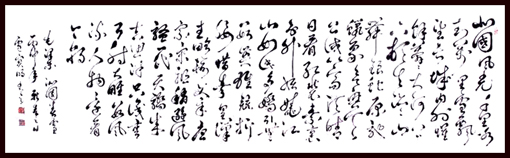 北國風光千里冰
封萬里雪飄
望長城內外惟
餘莽莽大河上
下頓失滔滔山
舞銀蛇原馳
蠟象欲與天
公試比高須晴
日看紅裝素裹
分外妖嬈江
山如此多嬌引無
數英雄競折
腰惜秦皇漢
武略輸文采唐
宗宋祖稍遜風
騷一代天驕
成吉思汗只識彎
弓射大雕俱往矣數風
流人物還看
今朝
毛澤東沁園春雪